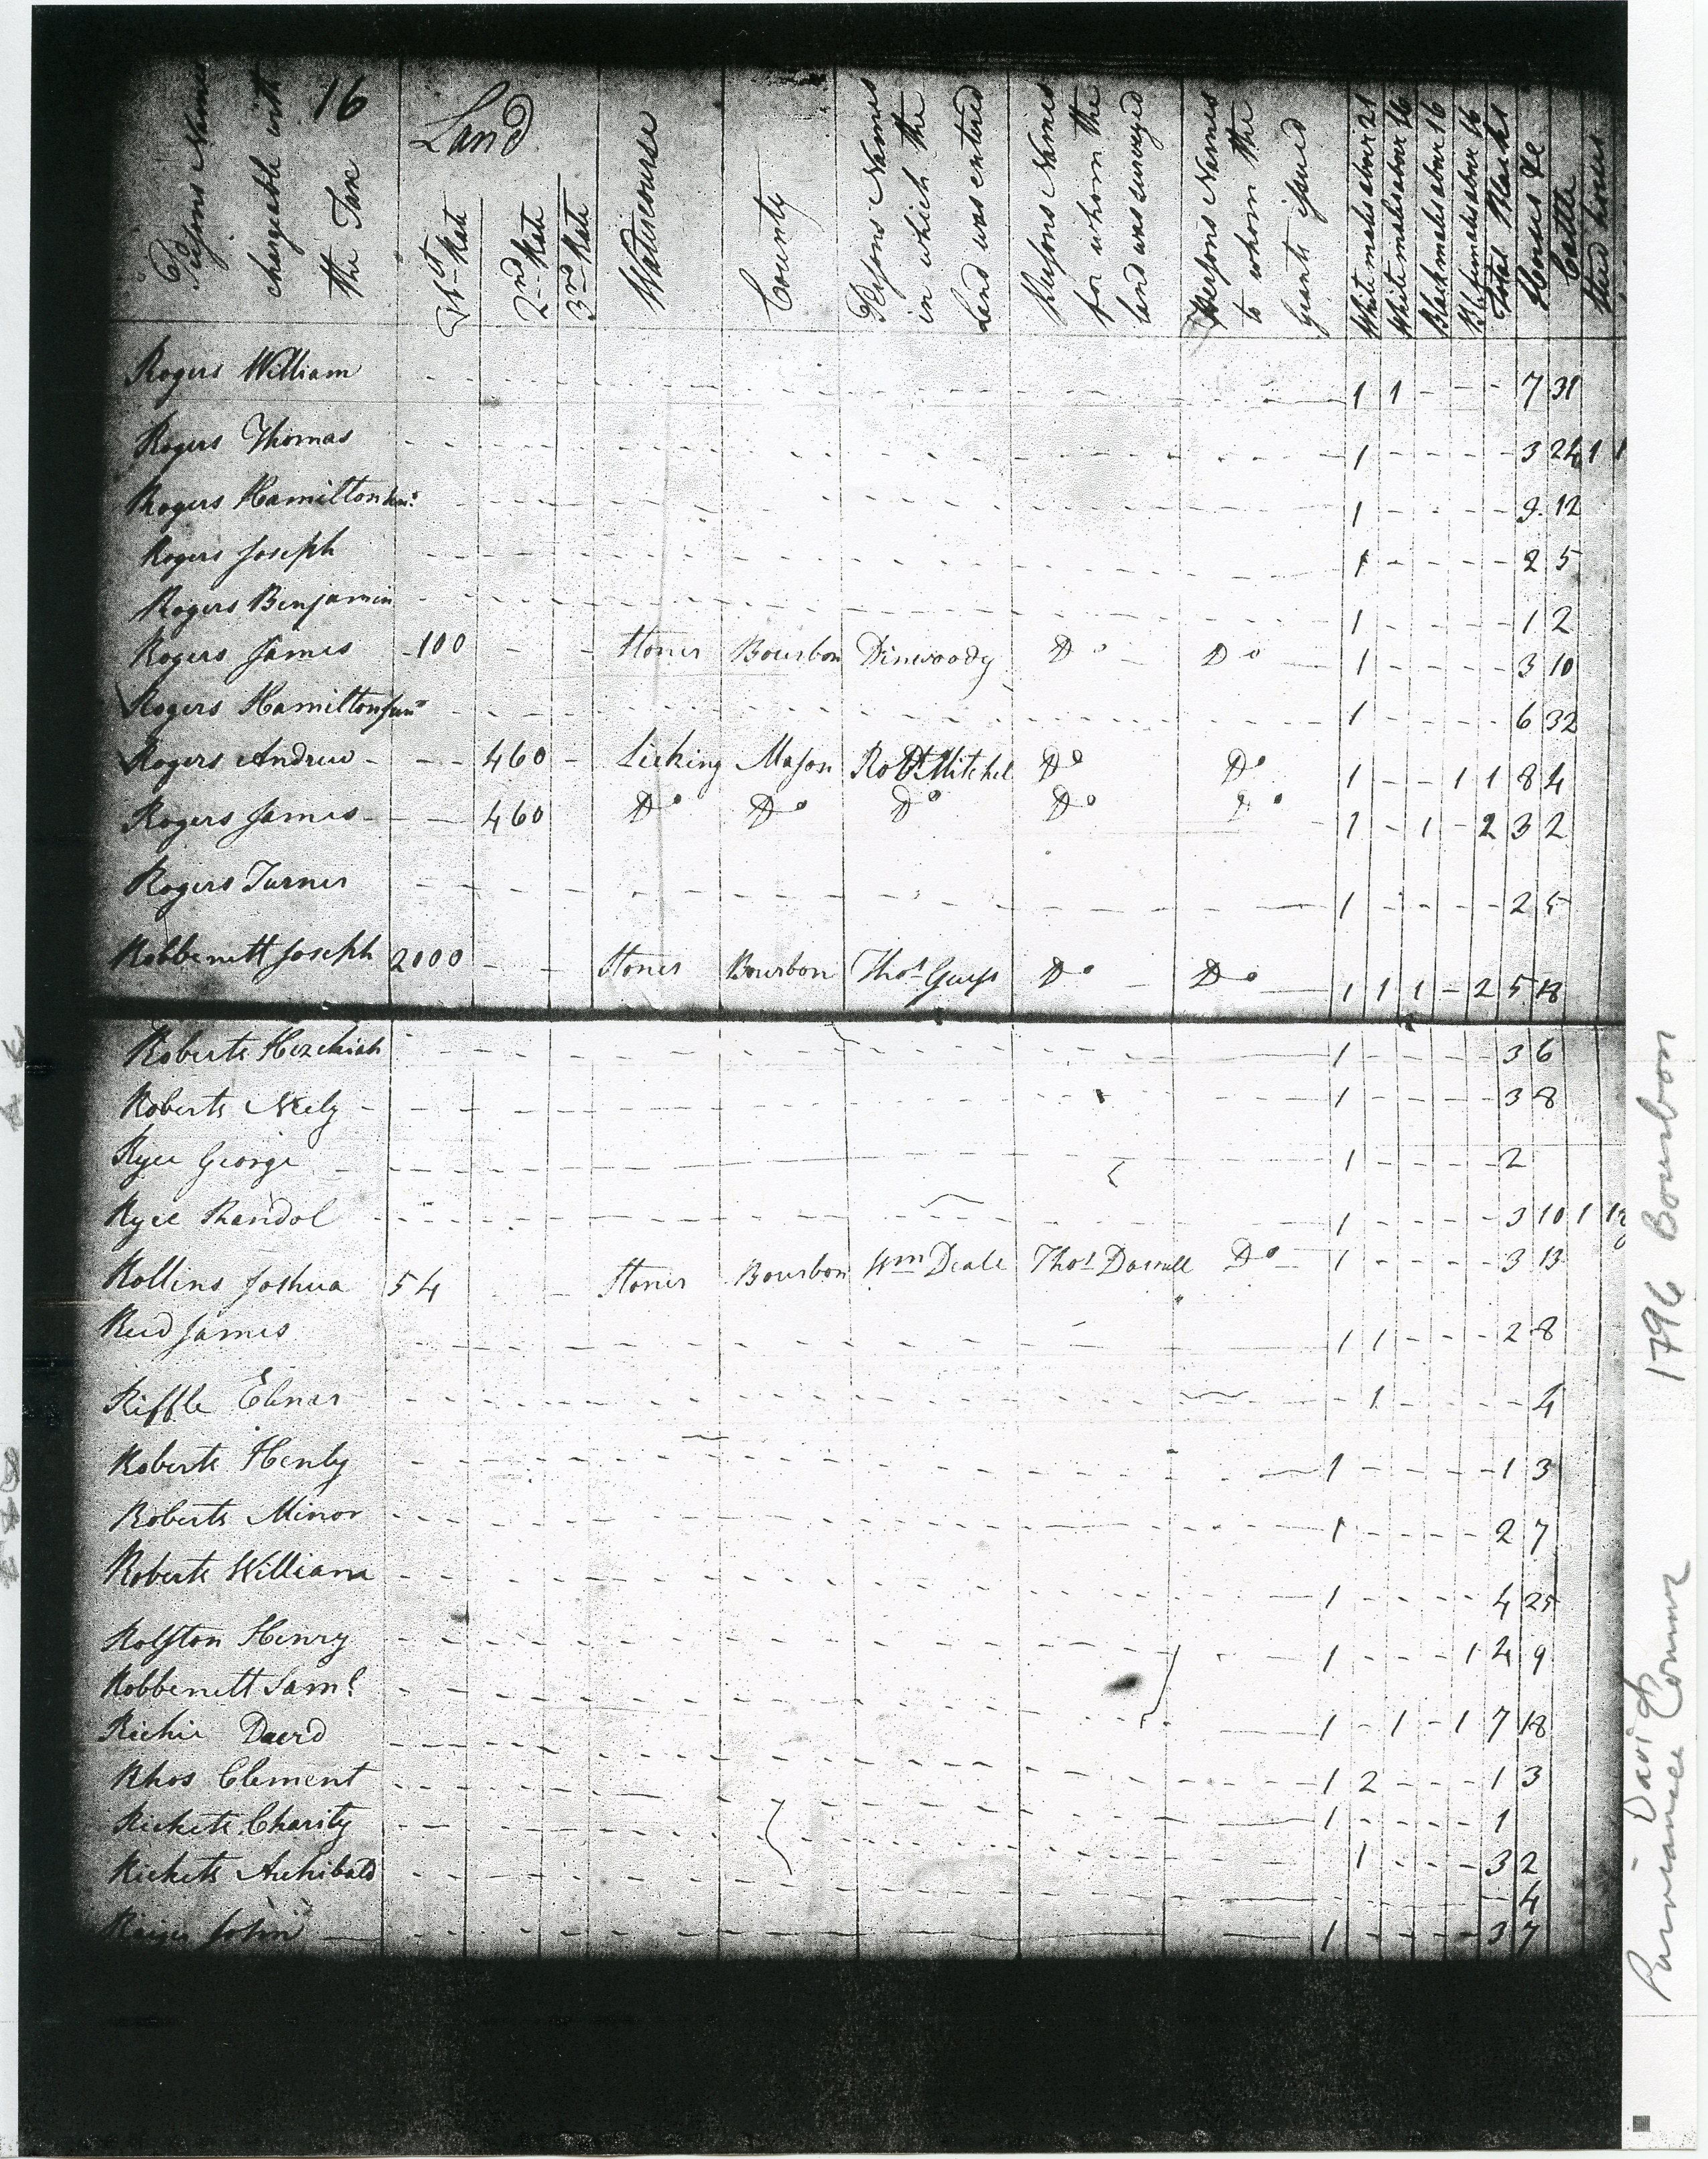 16
Persons Names chargeable with the Tax
Land
1st Rate
2nd Rate
3rd Rate
Watercourse
County
Persons Names in which the Land was entered
Persons Names for whom the land was surveyed
Persons Names to whom the grants issued
White males abov 21
White males abov 16
Black males abov 16
Total Blacks
Horses &c
Cattle
Stud horses
Rogers William 1 1 - - - 7 31
Rogers Thomas 1 - - - - 3 24 1 1
Rogers Hamilton 1 - - - - 9 12
Rogers Joseph 1 - - - - 2 5
Rogers Benjamin 1 - - - - 1 2
Rogers James 100 - - Stoner Bourbon Dinwoody Do Do 1 - - - - 3 10
Rogers Hamilton 1 - - - - 6 32
Rogers Andrew - - 460 - Licking Mason Robt Mitchel Do Do 1 - - 1 1 8 4
Rogers James - - 460 Do Do Do Do Do 1 - 1 - 2 3 2
Rogers Turner 1 - - - - 2 5
Robbenett Joseph 2000 - - Stoner Bourbon Thos Do Do 1 1 1 - 2 5 18
Roberts Hezekiah 1 - - - - 3 6
Roberts Neely 1 - - - - 3 8
Ryce George 1 - - - - 2
Ryce Randol 1 - - - - 3 10 1
Rollins Joshua 54 Stoner Bourbon Wm Deale Thos Darnell Do 1 - - - - 3 13
Reid James 1 1 - - - 2 8
Riffle - 1 - - - 4
Roberts Henly 1 - - - - 1 3
Roberts Minor 1 - - - - 2 7
Roberts William 1 - - - - 4 25
Rolston Henry 1 - - - 1 4 9
Robbenett Saml
Richie David 1 - 1 - 1 7 18
Rhos Clement 1 2 - - - 1 3
Rickets Charity 1 - - - - 1
Rickets Archibald 1 - - - 3 2
4
John 1 - - - - 3 7
1796 Bourbon
David Purviance Commr